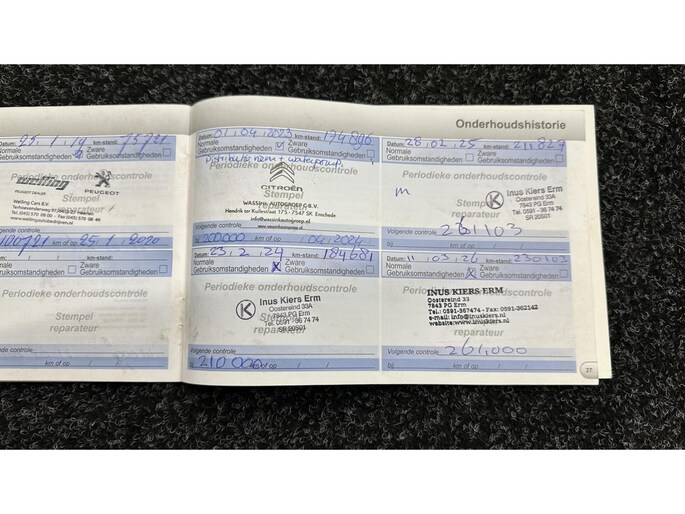 Onderhoudshistorie
25.1.19 km-stand: 75721
Normale
Gebruiksomstandigheden
Zware
Gebruiksomstandigheden
Periodieke onderhoudscontrole
welling
PEUGEOT DEALER
PEUGEOT
Welling Cars B.V.
Stempel
reparateur
Volgende controle
100721 km of op 25.1.2020
Datum: / / km-stand:
Normale
Gebruiksomstandigheden
Zware
Gebruiksomstandigheden
Periodieke onderhoudscontrole
Stempel
reparateur
Volgende controle
km of op / /
Datum: 01.04.2023 km-stand: 174896
Normale
Gebruiksomstandigheden
Zware
Gebruiksomstandigheden
Distributieriem + waterpomp
Periodieke onderhoudscontrole
CITROËN
Stempel
WASSINK AUTOGROEP B.V.
Hendrik ter Kuilestraat 175 - 7547 SK Enschede
Volgende controle
200000 km of op 04.2024
Datum: 23.2.24 km-stand: 184681
Normale
Gebruiksomstandigheden
Zware
Gebruiksomstandigheden
Periodieke onderhoudscontrole
Inus Kiers Erm
Oostereind 33A
7843 PG Erm
Tel. 0591 - 36 74 74
SR 20501
Volgende controle
bij 210000 km of op / /
Datum: 28.02.25 km-stand: 211827
Normale
Gebruiksomstandigheden
Zware
Gebruiksomstandigheden
Periodieke onderhoudscontrole
m
Stempel
reparateur
Inus Kiers Erm
Oostereind 33A
7843 PG Erm
Tel. 0591 - 36 74 74
SR 20501
Volgende controle
261103
bij km of op / /
Datum: 11.03.26 km-stand: 230103
Normale
Gebruiksomstandigheden
Zware
Gebruiksomstandigheden
Periodieke onderhoudscontrole
INUS KIERS ERM
Oostereind 33
7843 PG Erm
Tel.: 0591-367474 - Fax: 0591-362142
e-mail: info@inuskiers.nl
website: www.inuskiers.nl
Stempel
reparateur
Volgende controle
261.000
bij km of op / /
27